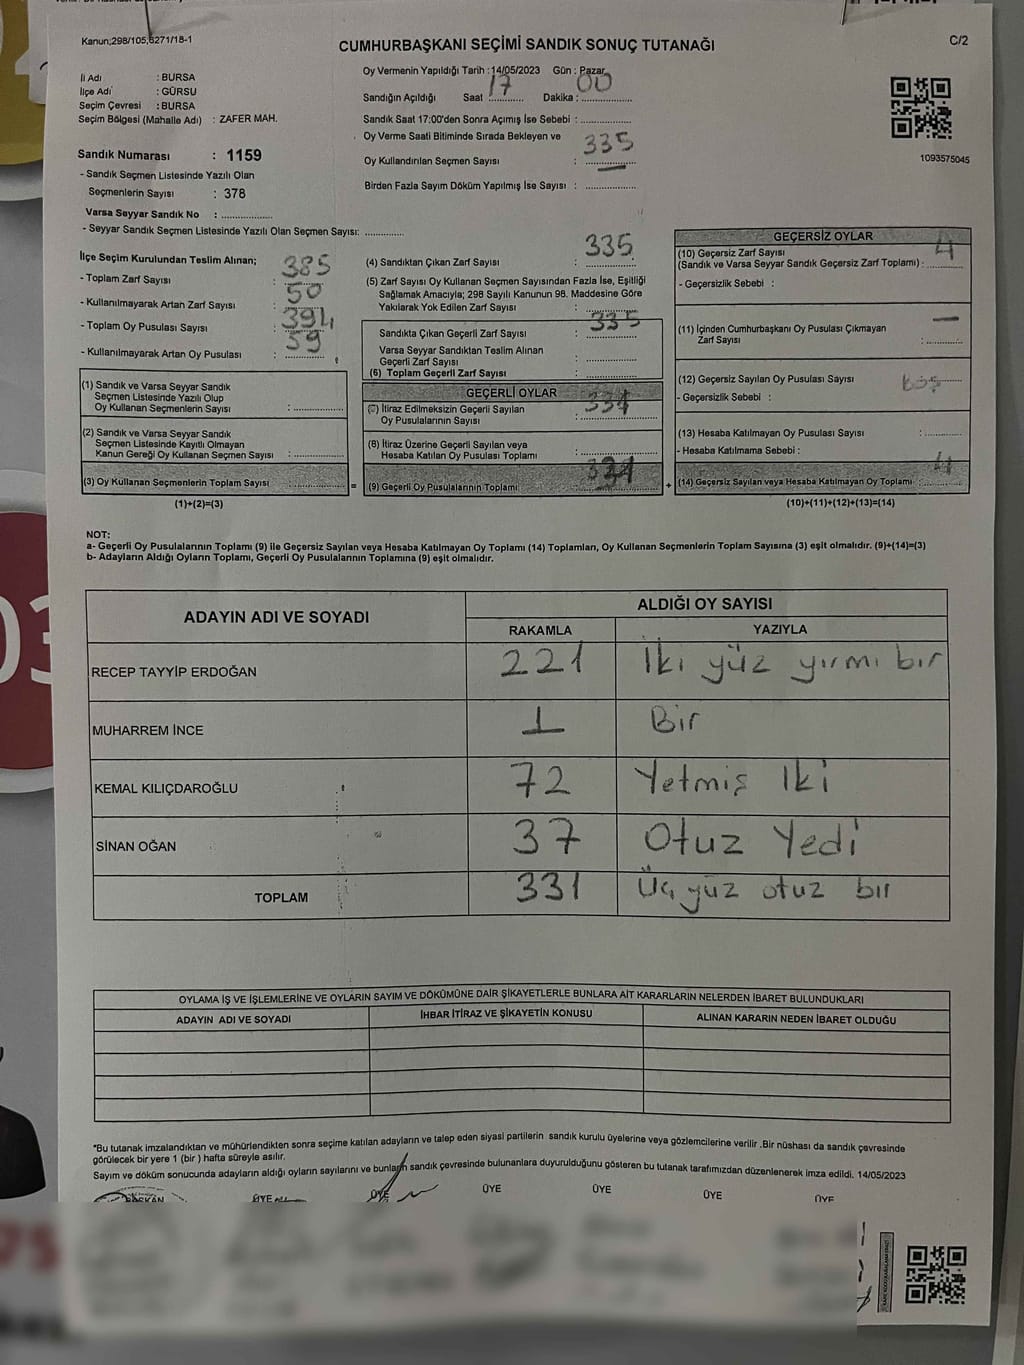 Kanun;298/105;6271/18-1
CUMHURBAŞKANI SEÇİMİ SANDIK SONUÇ TUTANAĞI
C/2
İl Adı : BURSA
İlçe Adı : GÜRSU
Seçim Çevresi : BURSA
Seçim Bölgesi (Mahalle Adı) : ZAFER MAH.
Oy Vermenin Yapıldığı Tarih : 14/05/2023 Gün : Pazar
Sandığın Açıldığı Saat : 17 Dakika : 00
Sandık Saat 17:00'den Sonra Açımış İse Sebebi :
Oy Verme Saati Bitiminde Sırada Bekleyen ve
Oy Kullandırılan Seçmen Sayısı : 335
Birden Fazla Sayım Döküm Yapılmış İse Sayısı :
1093575045
Sandık Numarası : 1159
- Sandık Seçmen Listesinde Yazılı Olan
Seçmenlerin Sayısı : 378
Varsa Seyyar Sandık No :
- Seyyar Sandık Seçmen Listesinde Yazılı Olan Seçmen Sayısı:
İlçe Seçim Kurulundan Teslim Alınan;
- Toplam Zarf Sayısı : 385
- Kullanılmayarak Artan Zarf Sayısı : 50
- Toplam Oy Pusulası Sayısı : 394
- Kullanılmayarak Artan Oy Pusulası : 59
(1) Sandık ve Varsa Seyyar Sandık
Seçmen Listesinde Yazılı Olup
Oy Kullanan Seçmenlerin Sayısı :
(2) Sandık ve Varsa Seyyar Sandık
Seçmen Listesinde Kayıtlı Olmayan
Kanun Gereği Oy Kullanan Seçmen Sayısı :
(3) Oy Kullanan Seçmenlerin Toplam Sayısı =
(1)+(2)=(3)
(4) Sandıktan Çıkan Zarf Sayısı : 335
(5) Zarf Sayısı Oy Kullanan Seçmen Sayısından Fazla İse, Eşitliği
Sağlamak Amacıyla; 298 Sayılı Kanunun 98. Maddesine Göre
Yakılarak Yok Edilen Zarf Sayısı :
Sandıkta Çıkan Geçerli Zarf Sayısı : 335
Varsa Seyyar Sandıktan Teslim Alınan
Geçerli Zarf Sayısı :
(6) Toplam Geçerli Zarf Sayısı :
GEÇERLİ OYLAR
(7) İtiraz Edilmeksizin Geçerli Sayılan
Oy Pusulalarının Sayısı :
(8) İtiraz Üzerine Geçerli Sayılan veya
Hesaba Katılan Oy Pusulası Toplamı :
(9) Geçerli Oy Pusulalarının Toplamı : +
GEÇERSİZ OYLAR
(10) Geçersiz Zarf Sayısı
(Sandık ve Varsa Seyyar Sandık Geçersiz Zarf Toplamı) : 4
- Geçersizlik Sebebi :
(11) İçinden Cumhurbaşkanı Oy Pusulası Çıkmayan
Zarf Sayısı : —
(12) Geçersiz Sayılan Oy Pusulası Sayısı
- Geçersizlik Sebebi :
(13) Hesaba Katılmayan Oy Pusulası Sayısı :
- Hesaba Katılmama Sebebi :
(14) Geçersiz Sayılan veya Hesaba Katılmayan Oy Toplamı : 4
(10)+(11)+(12)+(13)=(14)
NOT:
a- Geçerli Oy Pusulalarının Toplamı (9) ile Geçersiz Sayılan veya Hesaba Katılmayan Oy Toplamı (14) Toplamları, Oy Kullanan Seçmenlerin Toplam Sayısına (3) eşit olmalıdır. (9)+(14)=(3)
b- Adayların Aldığı Oyların Toplamı, Geçerli Oy Pusulalarının Toplamına (9) eşit olmalıdır.
ADAYIN ADI VE SOYADI
ALDIĞI OY SAYISI
RAKAMLA YAZIYLA
RECEP TAYYİP ERDOĞAN 221 İki yüz yırmı bır
MUHARREM İNCE 1 Bir
KEMAL KILIÇDAROĞLU 72 Yetmiş İki
SİNAN OĞAN 37 Otuz Yedi
TOPLAM 331 Üç yüz otuz bır
OYLAMA İŞ VE İŞLEMLERİNE VE OYLARIN SAYIM VE DÖKÜMÜNE DAİR ŞİKAYETLERLE BUNLARA AİT KARARLARIN NELERDEN İBARET BULUNDUKLARI
ADAYIN ADI VE SOYADI İHBAR İTİRAZ VE ŞİKAYETİN KONUSU ALINAN KARARIN NEDEN İBARET OLDUĞU
*Bu tutanak imzalandıktan ve mühürlendikten sonra seçime katılan adayların ve talep eden siyasi partilerin sandık kurulu üyelerine veya gözlemcilerine verilir .Bir nüshası da sandık çevresinde
görülecek bir yere 1 (bir ) hafta süreyle asılır.
Sayım ve döküm sonucunda adayların aldığı oyların sayılarını ve bunların sandık çevresinde bulunanlara duyurulduğunu gösteren bu tutanak tarafımızdan düzenlenerek imza edildi. 14/05/2023
BAŞKAN ÜYE ÜYE ÜYE ÜYE ÜYE ÜYE